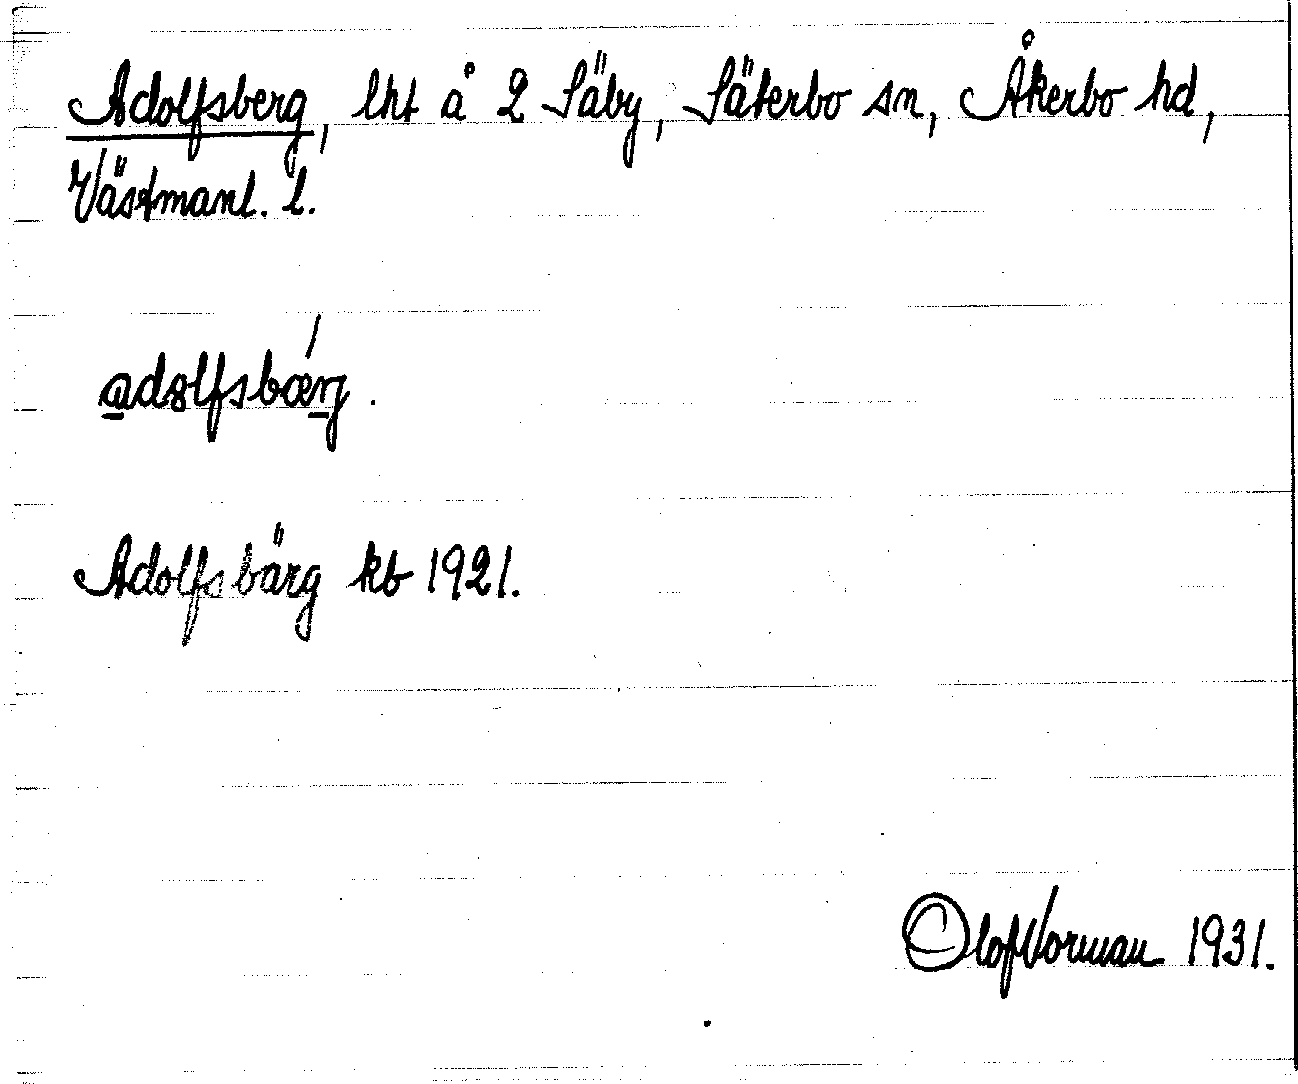 Adolfsberg, lht å 2 Säby, Säterbo sn, Åkerbo hd,
Västmanl. l.
adolfsbærj.
Adolfsbärg kb 1921.
Olof Vorman 1931.